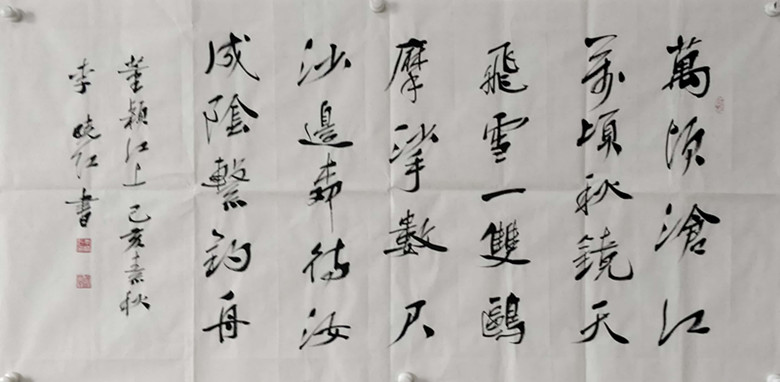 萬頃滄江
萬頃秋鏡天
飛雪一雙鷗
摩挲數尺
沙邊桺待汝
成陰繫釣舟
董穎江上己亥素秋
李曉紅書